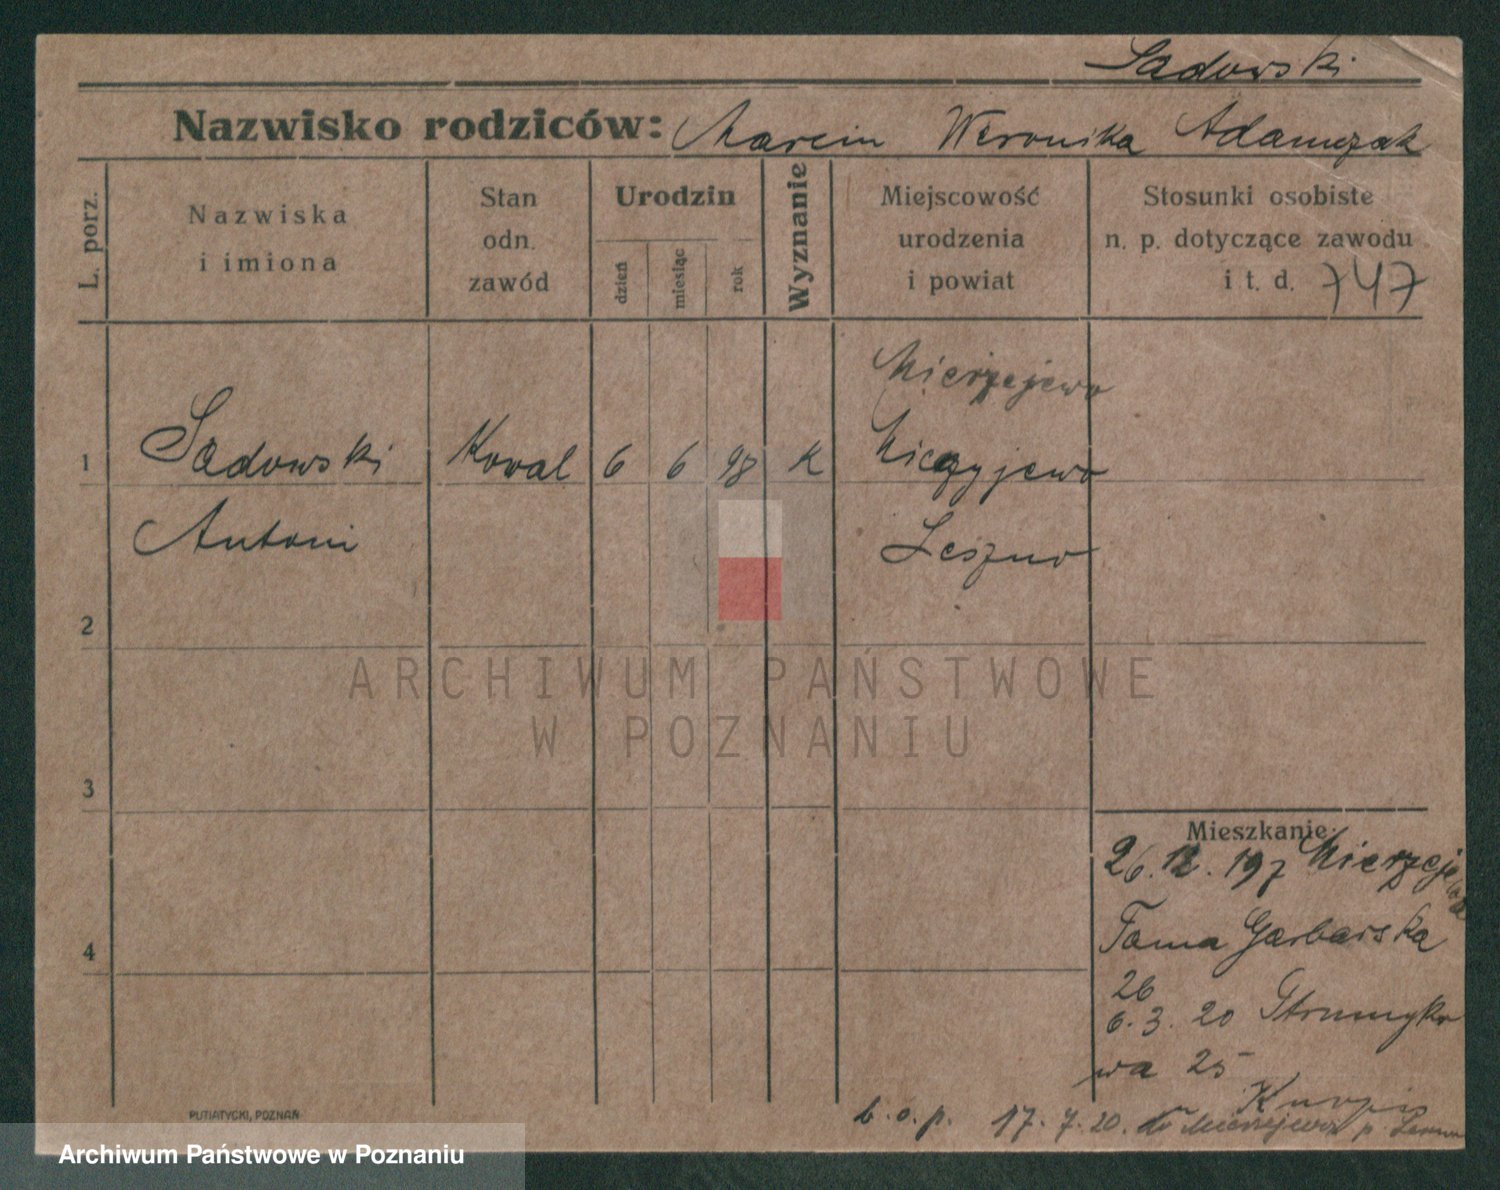 Sadowski
Nazwisko rodziców: Marcin Weronika Adamczak
L. porz.
Nazwiska
i imiona
Stan
odn.
zawód
Urodzin
dzień
miesiąc
rok
Wyznanie
Miejscowość
urodzenia
i powiat
Stosunki osobiste
n. p. dotyczące zawodu
i t. d. 747
Mierzejewo
1 Sadowski Kowal 6 6 98 K
Antoni Leszno
2
ARCHIWUM PAŃSTWOWE
W POZNANIU
3
Mieszkanie:
26.12.197 Mierzejewo
Tama Garbarska
4
26
6.3.20 Strumyko
wa 25
b.o.p. 17.7.20.
PUTIATYCKI, POZNAŃ
Archiwum Państwowe w Poznaniu